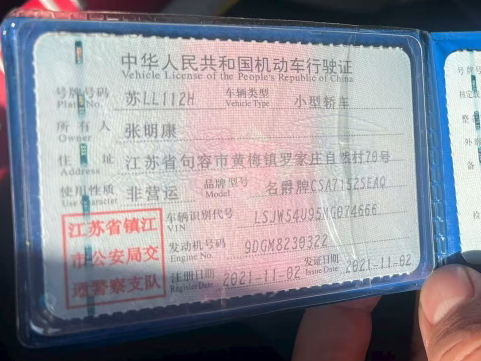 中华人民共和国机动车行驶证
Vehicle License of the People's Republic of China
号牌号码 苏LL112H 车辆类型 小型轿车
Plate No. Vehicle Type
所有人 张明康
Owner
住址 江苏省句容市黄梅镇罗家庄自然村70号
Address
使用性质 非营运 品牌型号 名爵牌CSA7152SEAQ
Use Character Model
车辆识别代号 LSJW54U95MG074666
VIN
发动机号码 9DGM8230322
Engine No.
注册日期 2021-11-02 发证日期 2021-11-02
Register Date Issue Date
江苏省镇江
市公安局交
通警察支队
号牌
核定
整
外
备